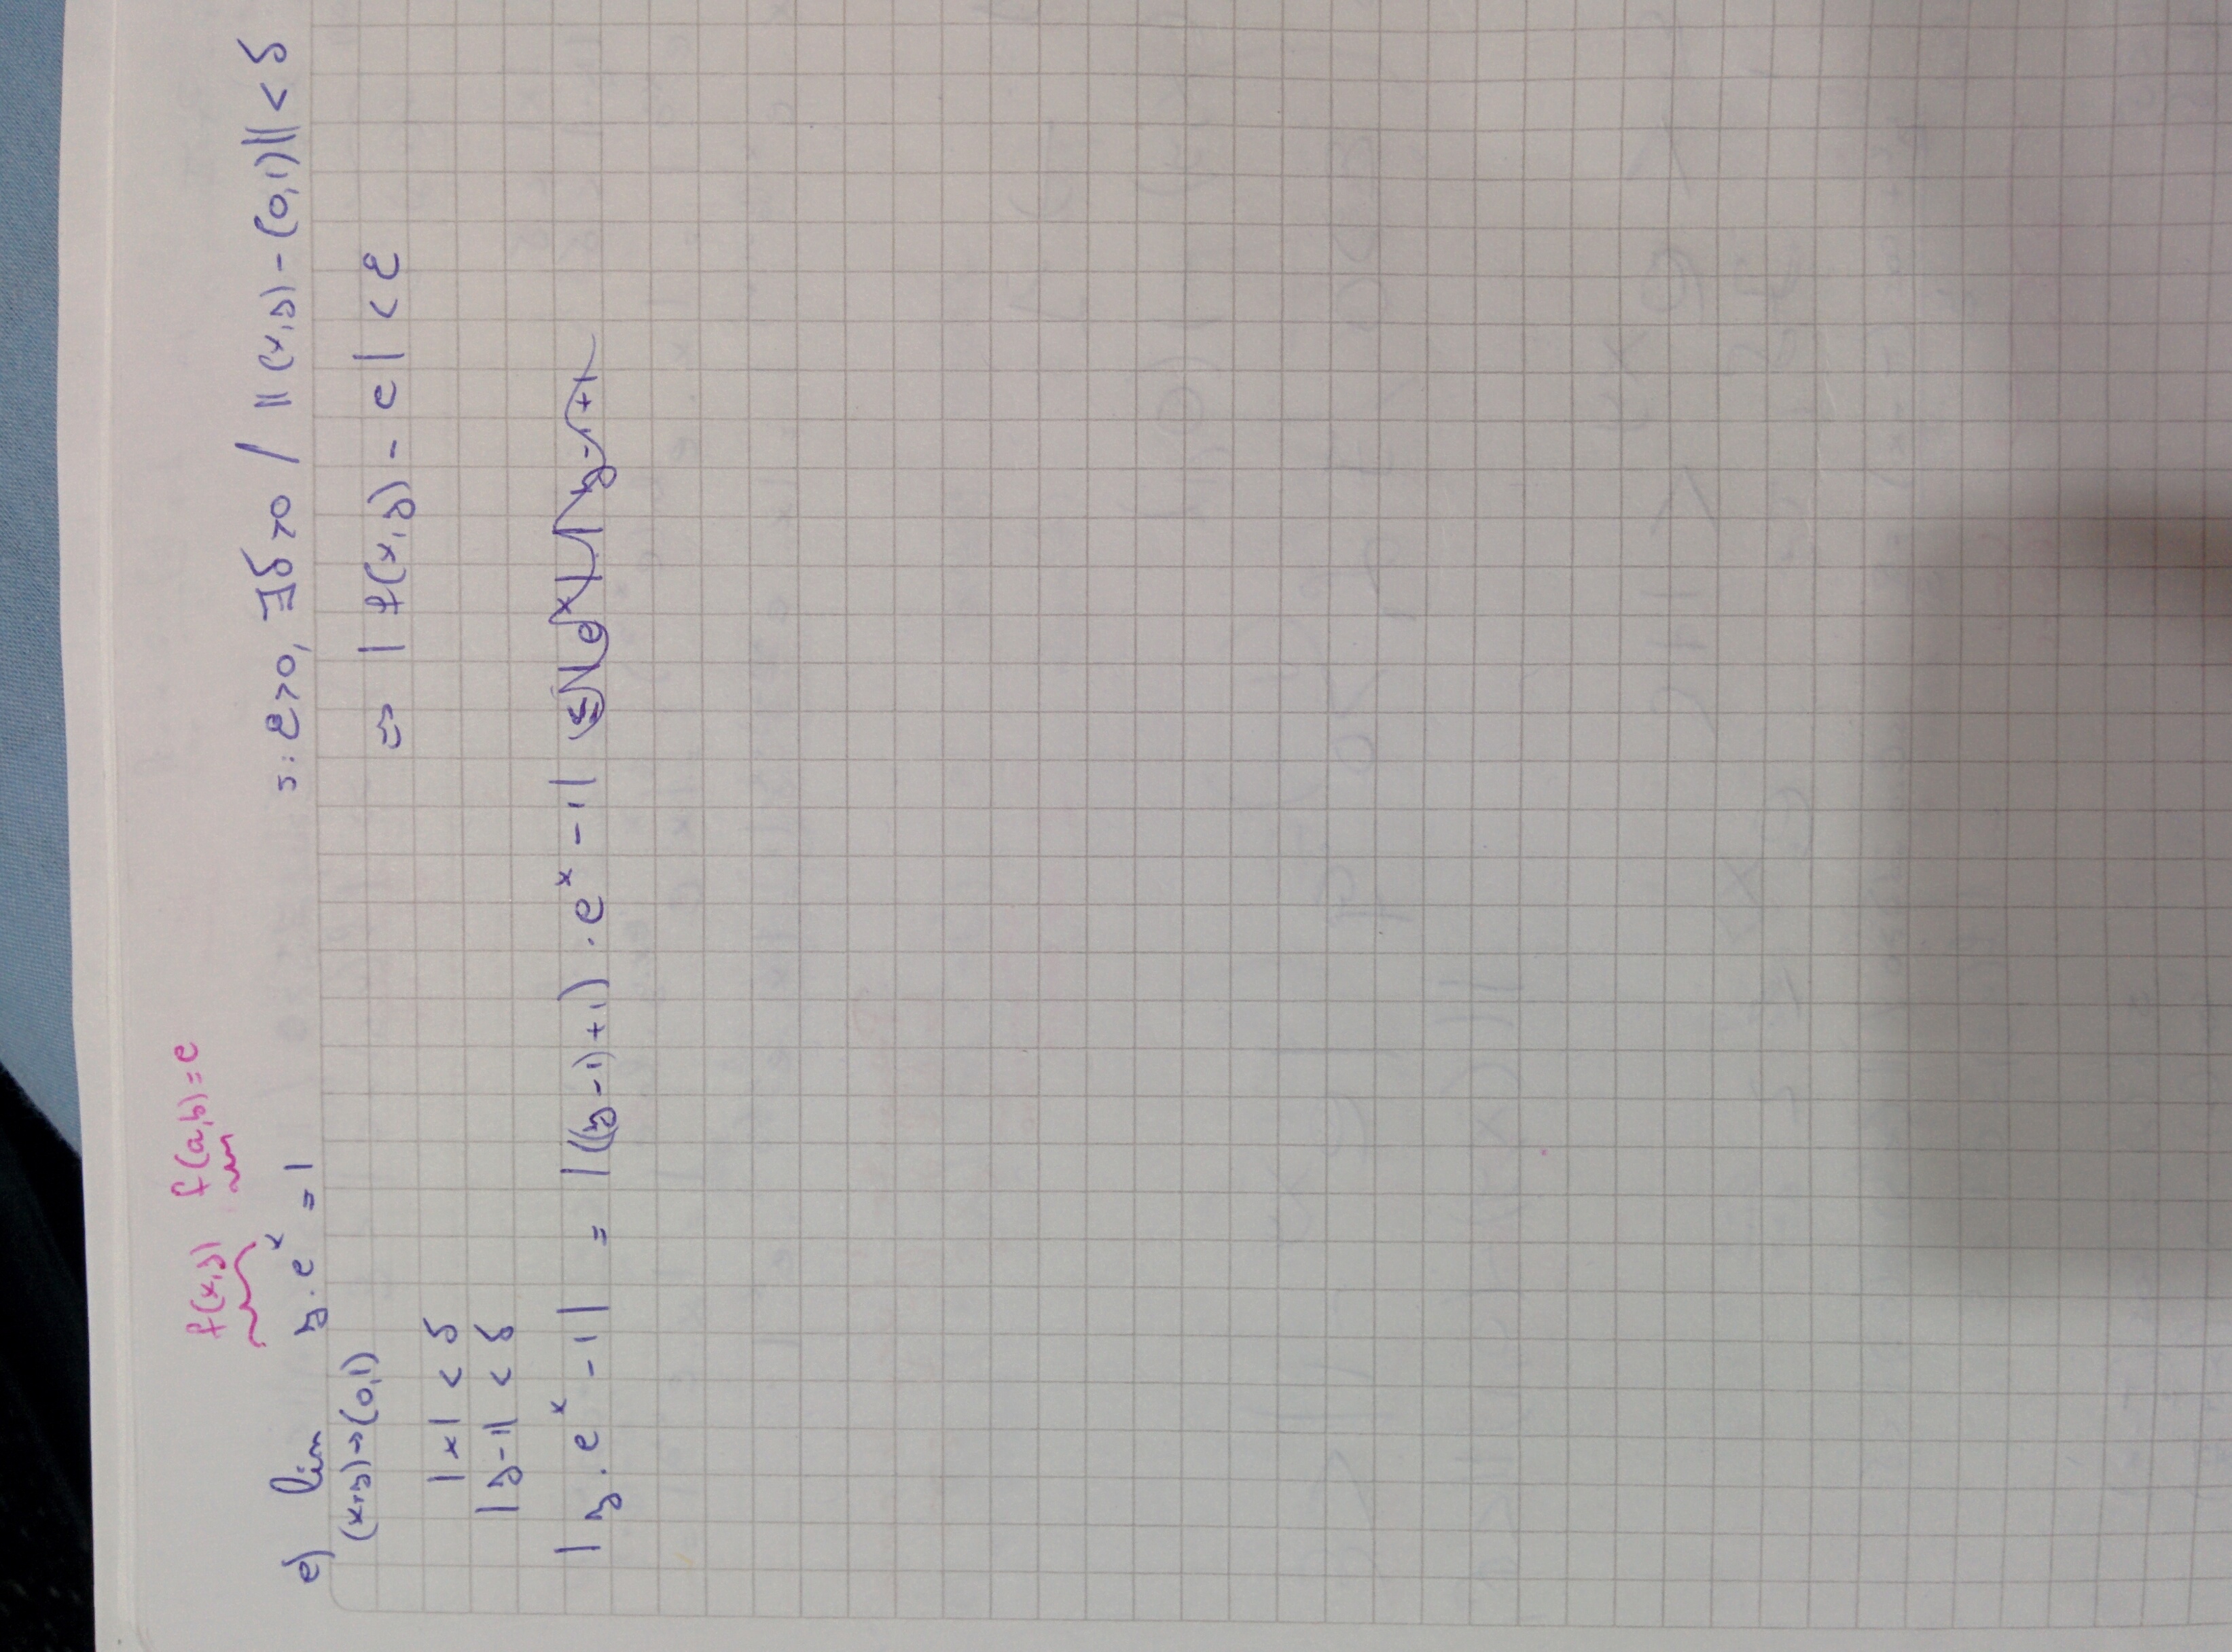 f(x,y) f(a,b)=e
e) lim y.e^x = 1
(x,y)→(0,1)
s: ε>0, ∃δ>0 / ||(x,y)-(0,1)|| < δ
=> | f(x,y) - e| < ε
|x| < δ
|y-1| < δ
|y.e^x -1| = |((y-1)+1).e^x -1|